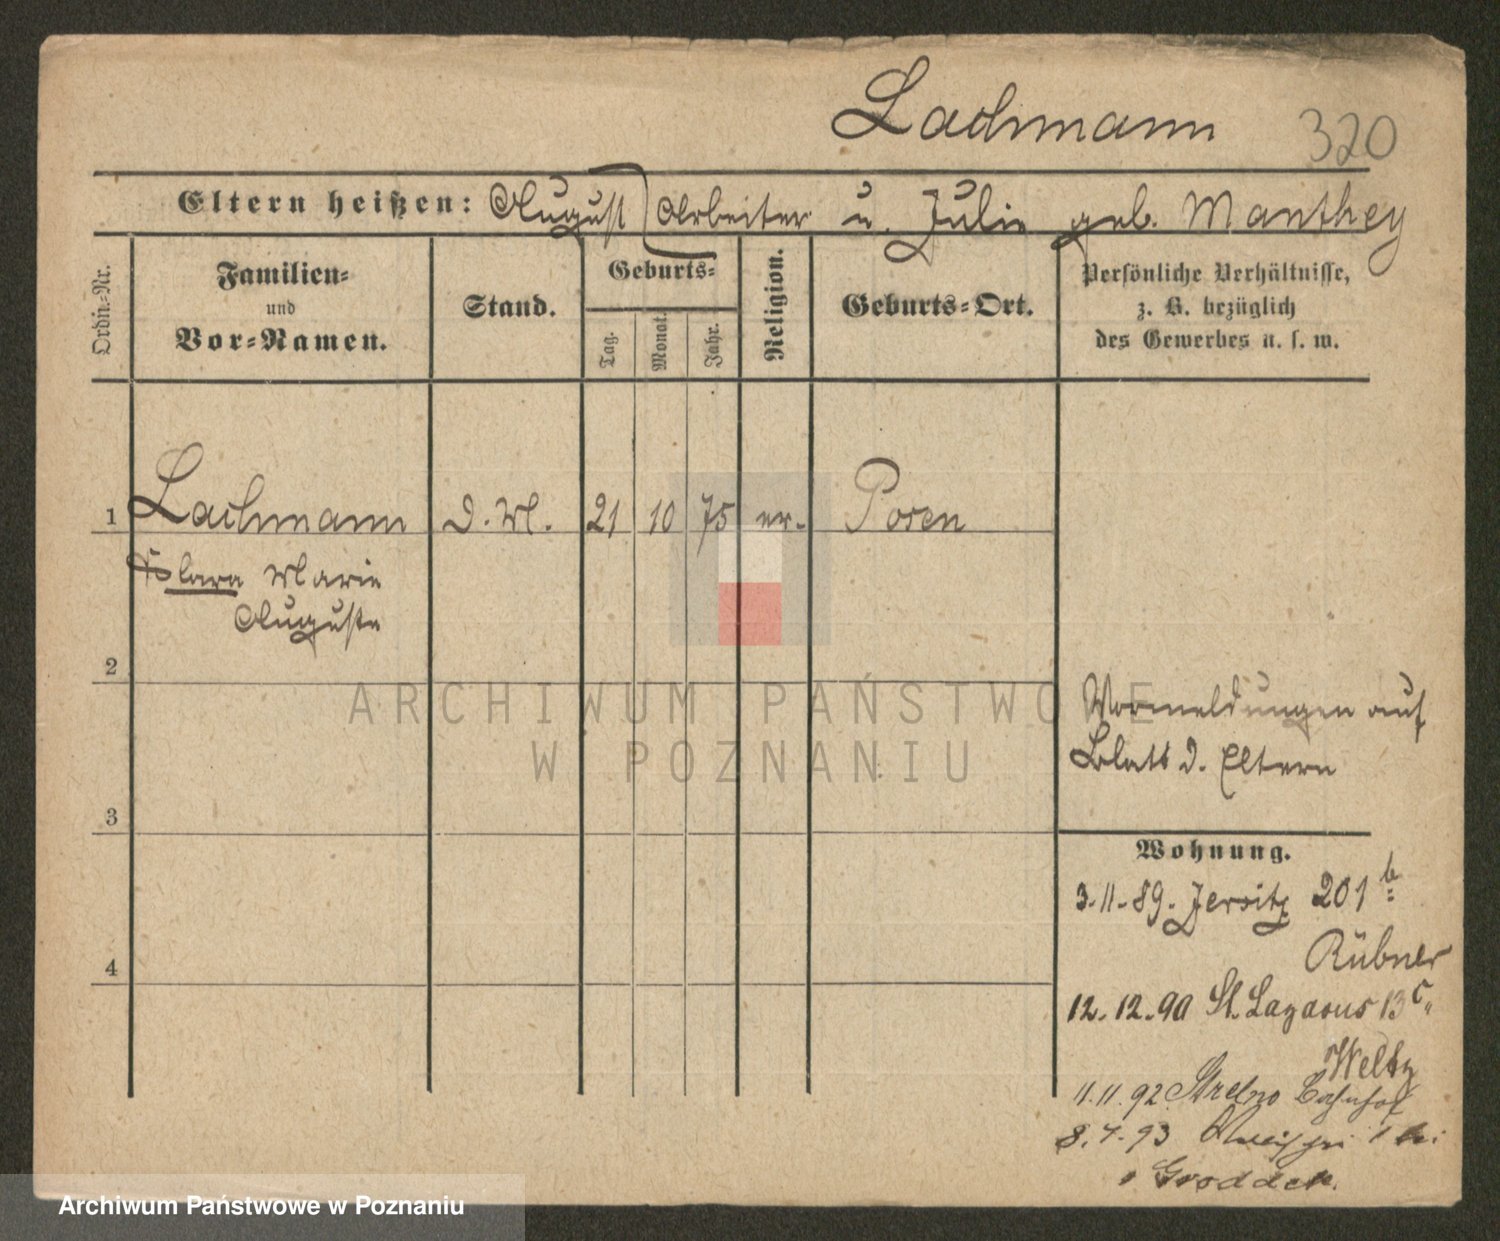 Lachmann 320
Eltern heißen: August Arbeiter u. Julie geb. Manthey
Ordn.-Nr.
Familien-
und
Vor-Namen.
Stand.
Geburts-
Tag.
Monat.
Jahr.
Religion.
Geburts-Ort.
Persönliche Verhältnisse,
z. B. bezüglich
des Gewerbes u. s. w.
1 Lachmann D. M. 21 10 75 ev. Posen
Klara Marie
Auguste
2
3
4
Vormeldungen auf
Blatt d. Eltern
Wohnung.
3.11.89. Jersitz 201 b
Rübner
12.12.90 St. Lazarus 13 c
Weltz
11.11.92 Strelno Bahnhof
8.7.93 1 bei
Groddek.
ARCHIWUM PAŃSTWOWE
W POZNANIU
Archiwum Państwowe w Poznaniu